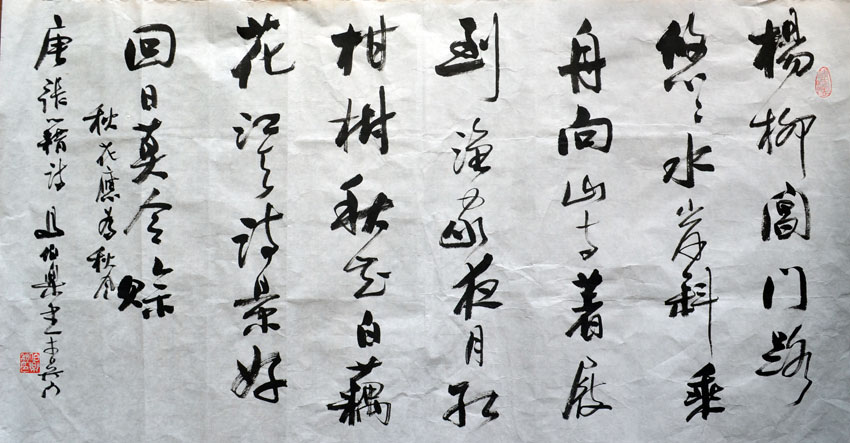 楊柳閶門路
悠々水岸斜乘
舟向山寺著屐
到漁家夜月紅
柑樹秋花白藕
花江天詩景好
回日莫令賒
秋花應為秋風
唐張籍詩馬伯樂書于